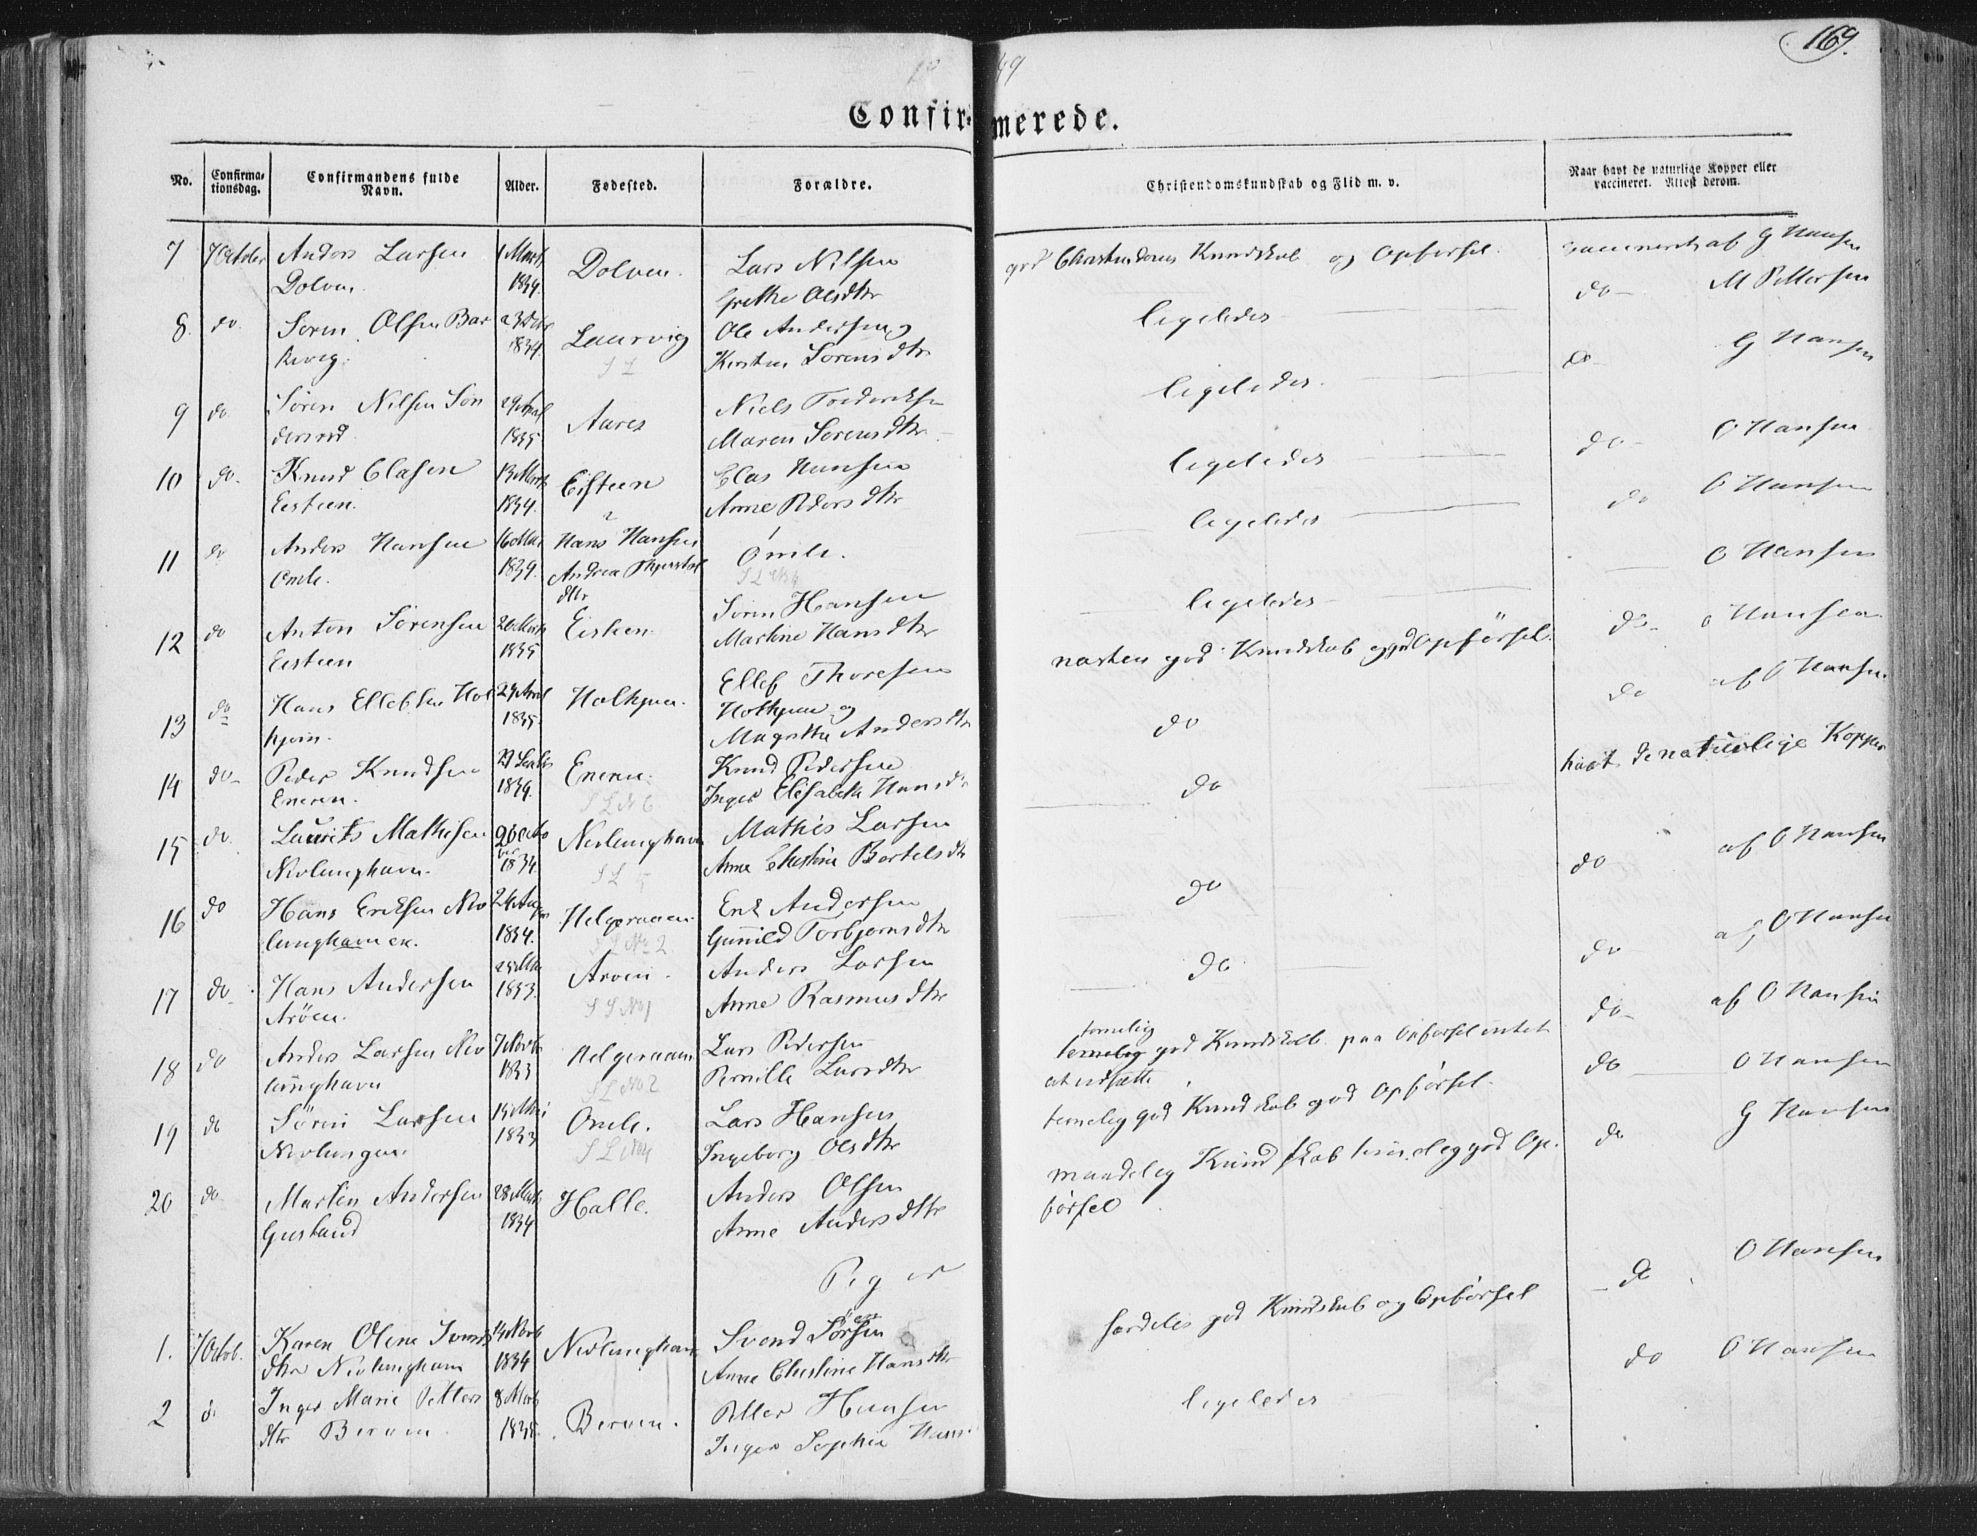 169.
1849
Confirmerede.
No.
Confirma-
tionsdag.
Confirmandens fulde
Navn.
Alder.
Fødested.
Forældre.
Christendomskundskab og Flid m. v.
Naar havt de naturlige Kopper eller
vaccineret. Attest derom.
7 7 October Anders Larsen 1 Marts Dolven. Lars Nilsen god Christendoms Kundskab og Opførsel. vaccineret af G Hansen
Dolven. 1834. Grethe Olsdtr
8. do. Søren Olsen Bar 23 Laurvig Ole Andersen og ligeledes do M Pettersen
kevig. 1834. Kirsten Sørensdtr
9 do Søren Nilsen Søn 29 April Aares Niels Frederiksen ligeledes. do G Hansen
dersrød 1835 Maren Sørensdtr
10 do. Knud Clasen 13 Marts Eisteen Clas Hansen ligeledes do O Hansen
Eesteen. 1834. Anne Pedersdtr
11 do Anders Hansen 16 Hans Hansen Omle. ligeledes do O Hansen
Omle. 1834. Andrea
dtr
12 do Anton Sørensen 20 Marts Eisteen Søren Hansen ligeledes O Hansen
Eesteen 1835 Martine Hansdtr
13 do Hans Ellefsen Hol 29 April Holkjøen. Ellef Thoresen næsten god Kundskab og god Opførsel. do O Hansen
kjøen. 1835. Holkjøen og
Magrethe Andersdtr
14 do Peder Knudsen Eneren. Knud Pedersen do do af O Hansen
Eneren. 1834. Inger Elisabeth Hansdtr
S L N 6
15 do. Laurits Mathisen 20 octo Nevlunghavn Mathis Larsen do havt de naturlige Kopper
Nevlunghavn. ber 1834. Anne Christine Bertelsdtr
16 do Hans Eriksen Nev 24 Helgeraaen Erik Andersen do do af O Hansen
lunghavn. 1834. Gunild Torbjørnsdtr
S L No 2
17 do Hans Andersen Arøen. Anders Larsen do do af O Hansen
Arøen. 1833. Anne Rasmusdtr
18 do Anders Larsen Nev Helgeraaen Lars Pedersen temelig god Kundskab paa Opførsel intet do af O Hansen
lunghavn 1833 Pernille Larsdtr at udsætte
S L No 2
19 do Søren Larsen Omle. Lars Hansen temelig god Kundskab god Opførsel. do O Hansen
1833 Ingeborg Olsdtr
S L No 4
20 do Martin Andersen 28 Marts Halle. Anders Olsen maadelig Kundskab temelig god Op- do G Hansen
1834 Anne Andersdtr førsel
Piger
1. 7 Octob. Karen Olene Svends Nevlunghavn Svend særdeles god Kundskab og Opførsel do O Hansen
dtr Nevlunghavn 1834 Anne Christine Hansdtr
2 do Inger Marie Petters 8 Marts Berven. Petter Hansen ligeledes do O Hansen
dtr Berven 1835. Inger Sophie Hans